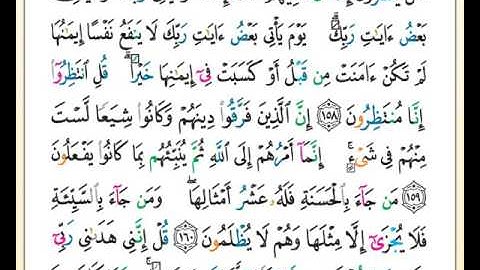 بَعْضُ ءَايَٰتِ رَبِّكَۗ يَوْمَ يَأْتِى بَعْضُ ءَايَٰتِ رَبِّكَ لَا يَنفَعُ نَفْسًا إِيمَٰنُهَا
لَمْ تَكُنْ ءَامَنَتْ مِن قَبْلُ أَوْ كَسَبَتْ فِىٓ إِيمَٰنِهَا خَيْرًاۗ قُلِ ٱنتَظِرُوٓا۟
إِنَّا مُنتَظِرُونَ ١٥٨ إِنَّ ٱلَّذِينَ فَرَّقُوا۟ دِينَهُمْ وَكَانُوا۟ شِيَعًا لَّسْتَ
مِنْهُمْ فِى شَىْءٍۚ إِنَّمَآ أَمْرُهُمْ إِلَى ٱللَّهِ ثُمَّ يُنَبِّئُهُم بِمَا كَانُوا۟ يَفْعَلُونَ
١٥٩ مَن جَآءَ بِٱلْحَسَنَةِ فَلَهُۥ عَشْرُ أَمْثَالِهَاۖ وَمَن جَآءَ بِٱلسَّيِّئَةِ
فَلَا يُجْزَىٰٓ إِلَّا مِثْلَهَا وَهُمْ لَا يُظْلَمُونَ ١٦٠ قُلْ إِنَّنِى هَدَىٰنِى رَبِّىٓ